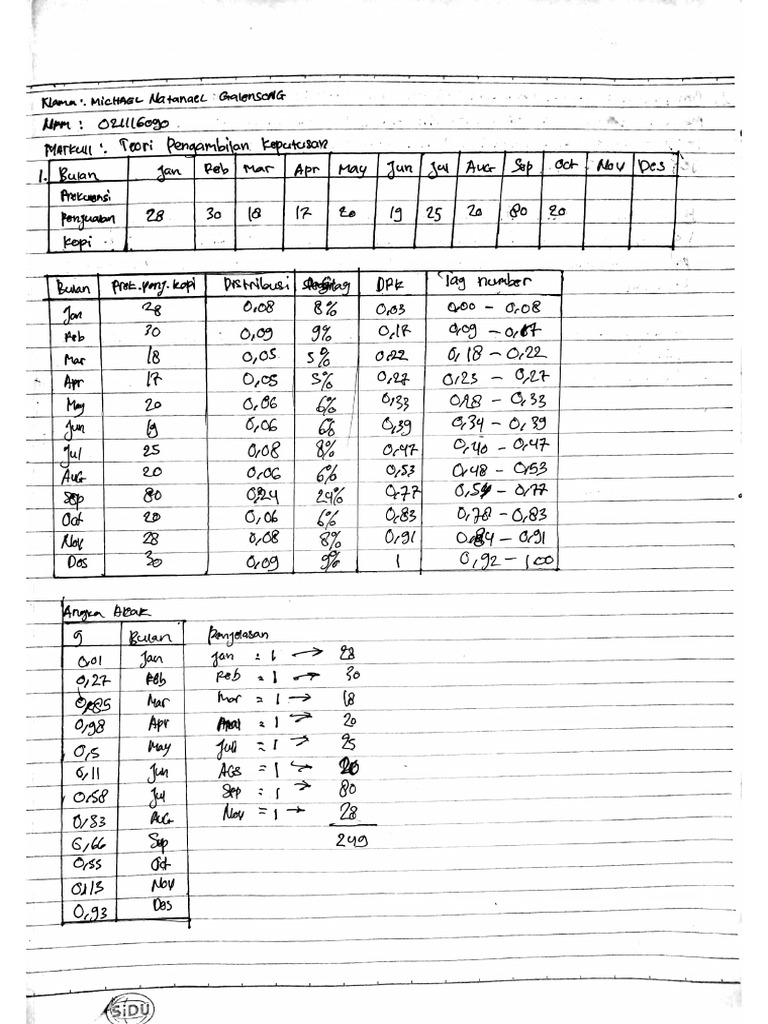 Nama : Michael Natanael Galensong
NPM : 021116090
Matkul : Teori Pengambilan Keputusan
1. Bulan Jan Feb Mar Apr May Jun Jul Aug Sep Oct Nov Des
Frekuensi Penjualan Kopi 28 30 18 17 20 19 25 20 80 20
Bulan Frek. penj. kopi Distribusi DPK Tag number
Jan 28 0,08 8% 0,03 0,00 - 0,08
Feb 30 0,09 9% 0,17 0,09 - 0,17
Mar 18 0,05 5% 0,22 0,18 - 0,22
Apr 17 0,05 5% 0,27 0,23 - 0,27
May 20 0,06 6% 0,33 0,28 - 0,33
Jun 19 0,06 6% 0,39 0,34 - 0,39
Jul 25 0,08 8% 0,47 0,40 - 0,47
Aug 20 0,06 6% 0,53 0,48 - 0,53
Sep 80 0,24 24% 0,77 0,54 - 0,77
Oct 20 0,06 6% 0,83 0,78 - 0,83
Nov 28 0,08 8% 0,91 0,84 - 0,91
Des 30 0,09 9% 1 0,92 - 100
Angka Acak
g Bulan Penjelasan
0,01 Jan Jan = 1 → 28
0,27 Feb Feb = 1 → 30
0,85 Mar Mar = 1 → 18
0,98 Apr = 1 → 20
0,5 May Jul = 1 → 25
0,11 Jun AGS = 1 → 20
0,58 Jul Sep = 1 → 80
0,83 Aug Nov = 1 → 28
6,66 Sep 249
0,55 Oct
0,13 Nov
0,93 Des
SiDU